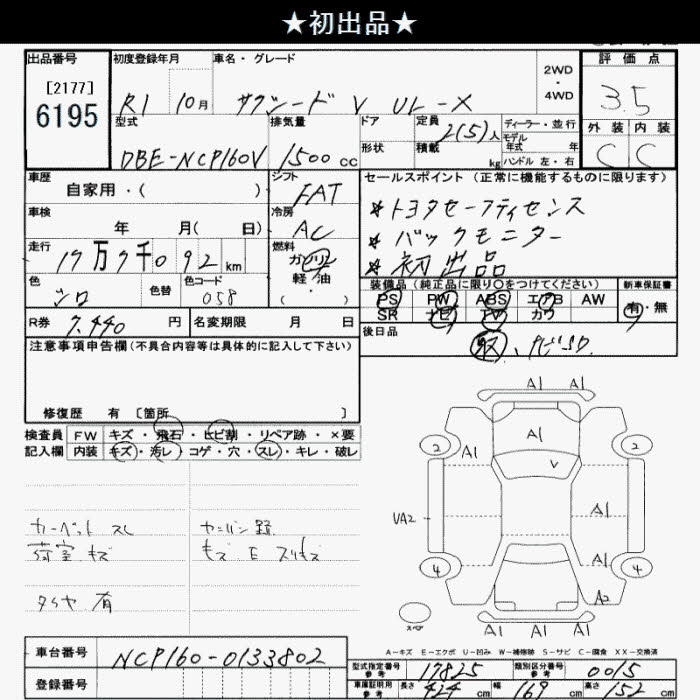 ★初出品★
出品番号
[2177]
6195
初度登録年月
R1 10月
車名・グレード
サクシード V UL-X
2WD
・
4WD
評価点
3.5
外装 内装
C C
型式
DBE-NCP160V
排気量
1500 cc
ドア
形状
定員
2(5)人
積載
kg
ディーラー・並行
モデル
年式 年
ハンドル 左・右
車歴
自家用・( )
シフト
FAT
セールスポイント (正常に機能するものに限ります)
★トヨタセーフティセンス
★バックモニター
★初出品
車検
年 月( 日)
冷房
AC
走行
17万7千092 km
燃料
ガソリン
軽・油
( ・ )
色
シロ
色替
色コード
058
装備品 (純正品に限り○をつけてください)
PS PW ABS エアB AW
SR ナビ TV カワ
新車保証書
有・無
R券
7,440 円
名変期限 月 日
後日品
取、ナビSD
注意事項申告欄 (不具合内容等は具体的に記入して下さい)
修復歴 有 〔箇所 〕
検査員 FW キズ・飛石・ヒビ割・リペア跡・×要
記入欄 内装 キズ・汚レ・コゲ・穴・スレ・キレ・破レ
カーペット スレ
荷室 キズ
タイヤ 有
キズ E スリキズ
A1 A1
2 2
A1 A1
V
UA2
A1
A1
4 4
A2
スペア
A1 A1 A1
A-キズ E-エクボ U-凹み W-補修跡 S-サビ C-腐食 XX-交換済
車台番号
NCP160-0133802
登録番号
型式指定番号
参考
17825
類別区分番号
参考
0015
車庫証明用
参考
長さ 424 cm
幅 169 cm
高さ 152 cm